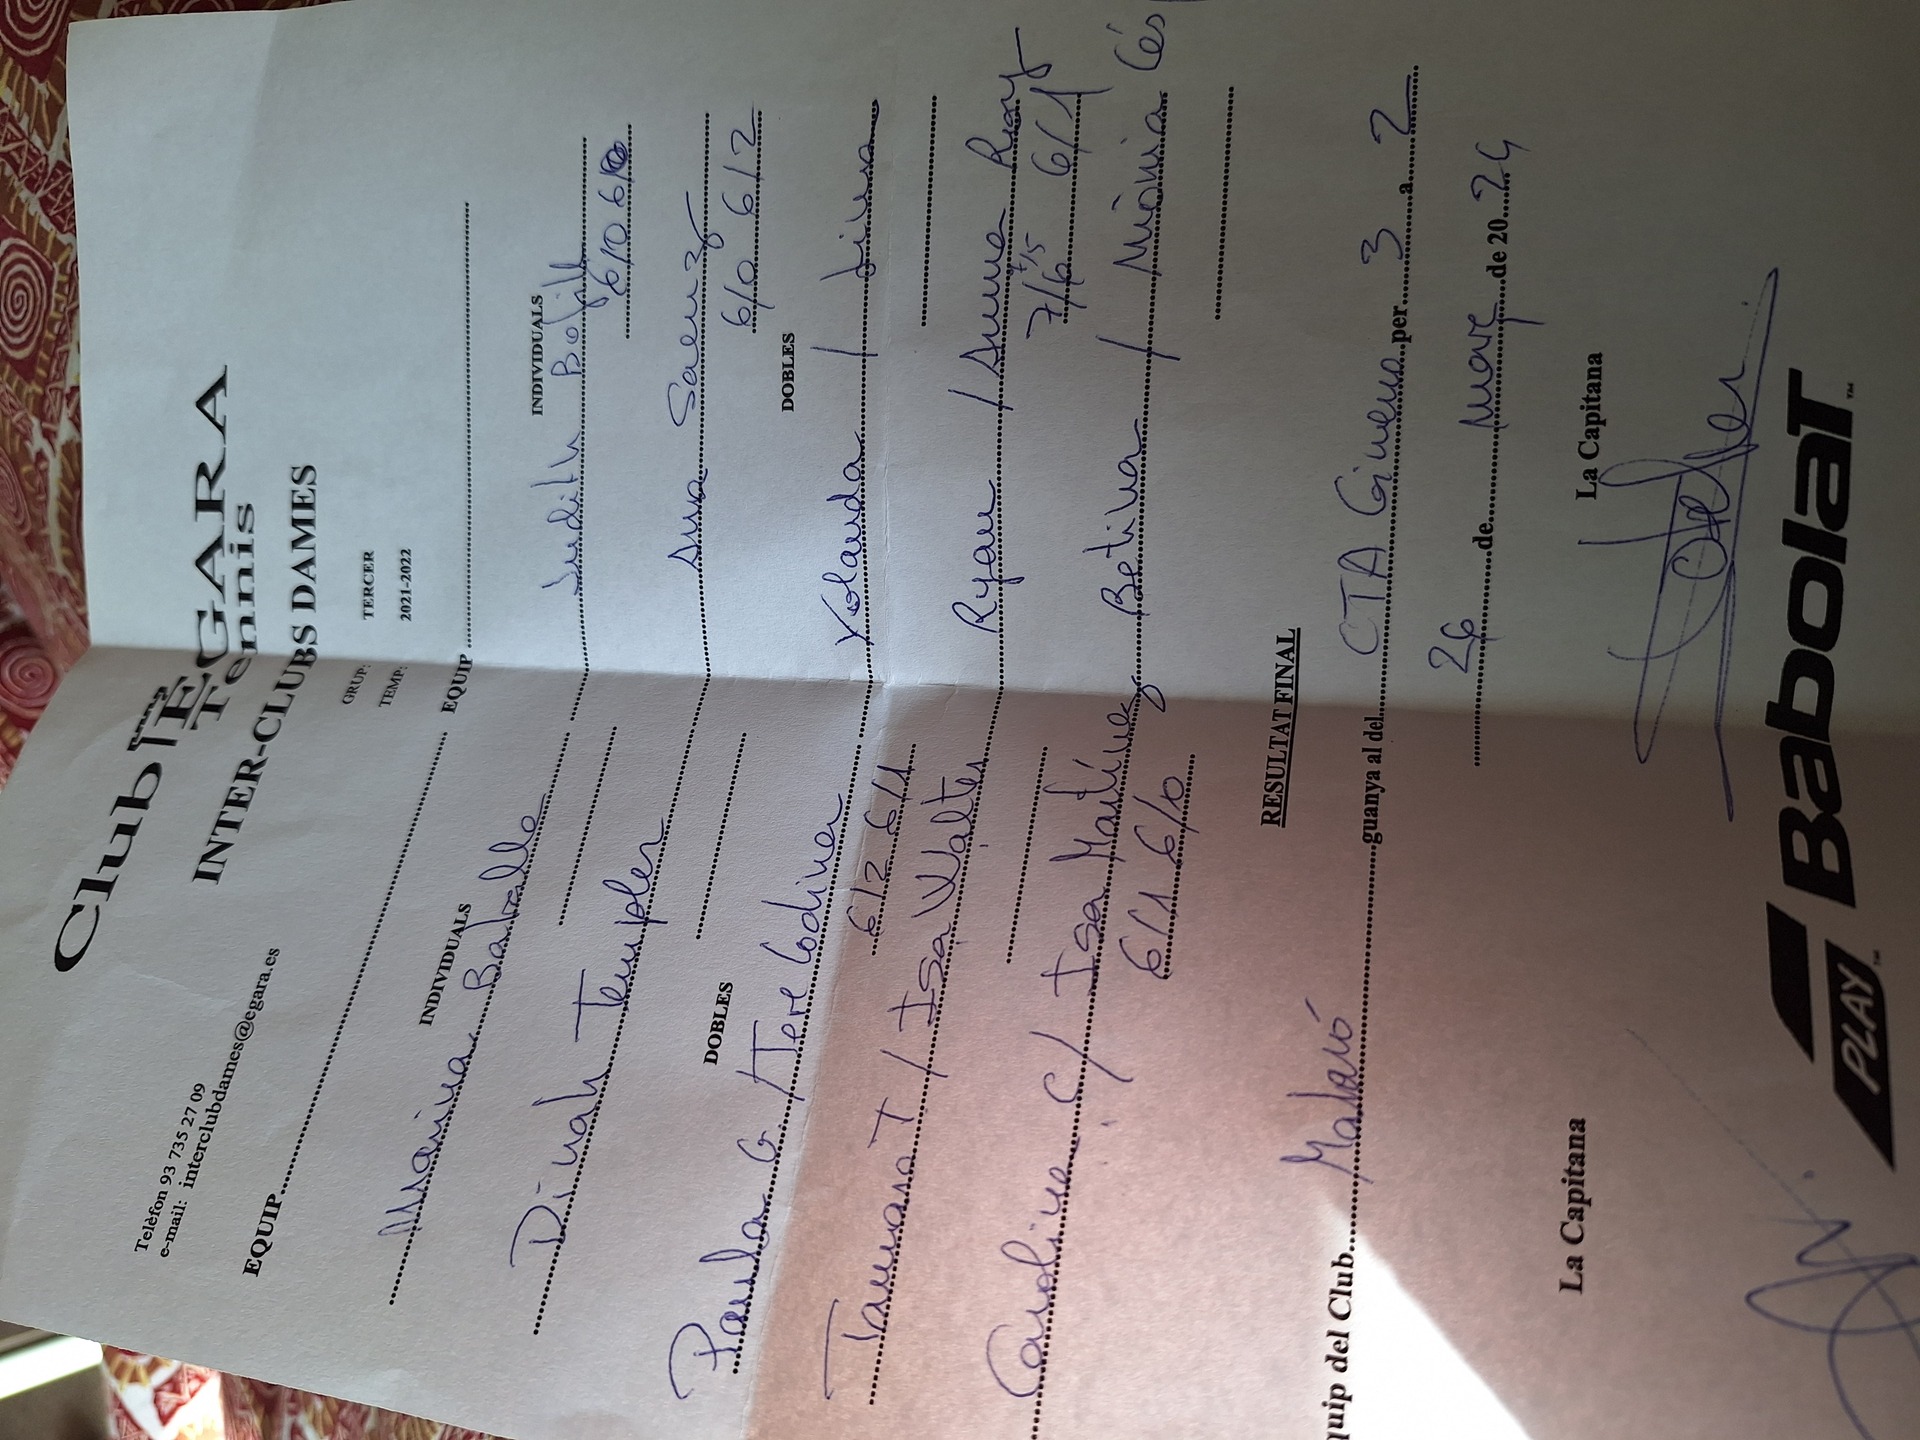 Club EGARA
Tennis
INTER-CLUBS DAMES
Telèfon 93 735 27 09
e-mail: interclubdames@egara.es
GRUP: TERCER
TEMP: 2021-2022
EQUIP EQUIP
INDIVIDUALS INDIVIDUALS
Marina Batalle Judith Bofill
6/0 6/0
Dinah Templer Anna Saenz
6/0 6/2
DOBLES DOBLES
Paula G. / Tere Codina Yolanda / Lina
6/2 6/1
Tamara T / Isa Walter Ryan / Anna
7/6 6/1
Carolina C / Isa Martínez Betina / Mònia
6/1 6/0
RESULTAT FINAL
quip del Club Mataró guanya al del CTA Giverna per 3 a 2
26 de Març de 2024
La Capitana La Capitana
PLAY™ BabolaT™